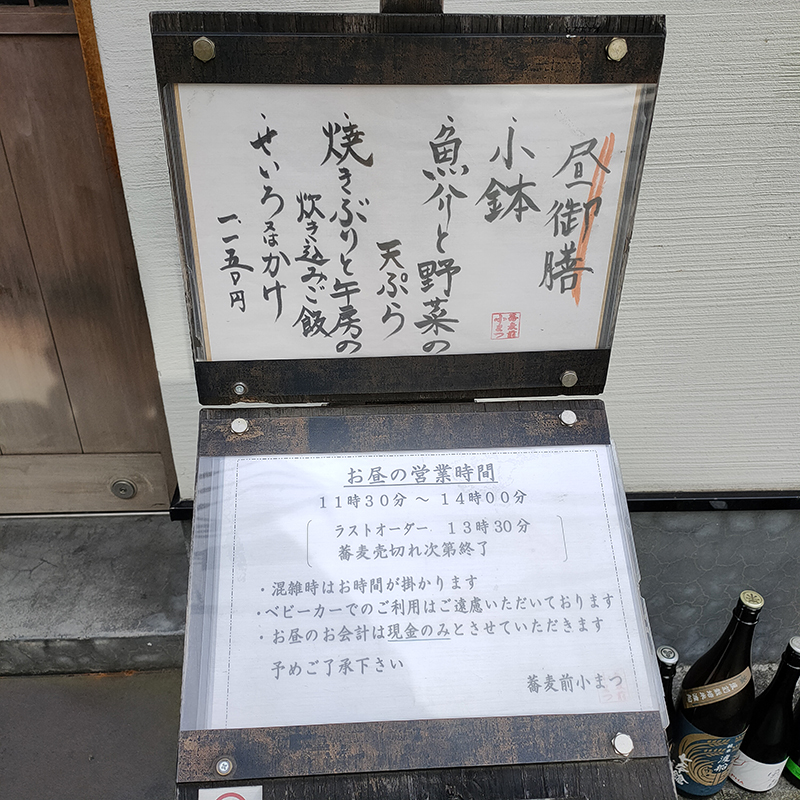 昼御膳
・小鉢
・魚介と野菜の
天ぷら
・焼きぶりと午房の
炊き込みご飯
・せいろ又はかけ
一、一五〇円
蕎麦前
小まつ
お昼の営業時間
11時30分 ～ 14時00分
ラストオーダー 13時30分
蕎麦売切れ次第終了
・混雑時はお時間が掛かります
・ベビーカーでのご利用はご遠慮いただいております
・お昼のお会計は現金のみとさせていただきます
予めご了承下さい
蕎麦前小まつ